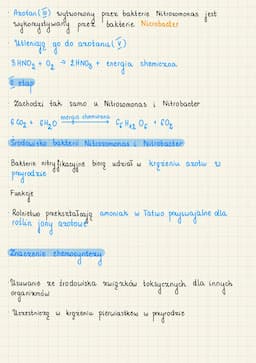 · Azotan (III) wytworzony przez bakterie Nitrosomonas jest
wykorzystywany przez bakterie Nitrobacter
· Utleniają go do azotanu (V)
3HNO2 + O2 → 2HNO3 + energia chemiczna
II etap
· Zachodzi tak samo u Nitrosomonas i Nitrobacter
6CO2 + 6H2O energia chemiczna → C6H12O6 + 6O2
Środowisko bakterii Nitrosomonas i Nitrobacter
Bakterie nitryfikacyjne biorą udział w krążeniu azotu w
przyrodzie
Funkcje
· Rolnictwo przekształcają amoniak w łatwo przyswajalne dla
roślin jony azotowe
Znaczenie chemosyntezy
· Usuwanie ze środowiska związków toksycznych dla innych
organizmów
· Uczestniczą w krążeniu pierwiastków w przyrodzie